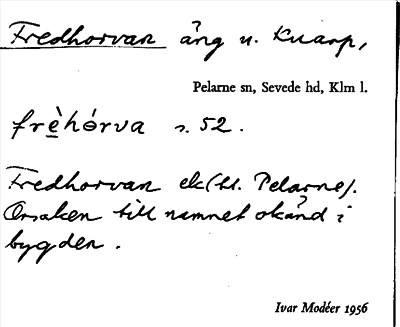 Fredhorvan äng u. Knarp,
Pelarne sn, Sevede hd, Klm l.
frèhórva s. 52.
Fredhorvan ek (bl. Pelarne).
Orsaken till namnet okänd i
bygden.
Ivar Modéer 1956